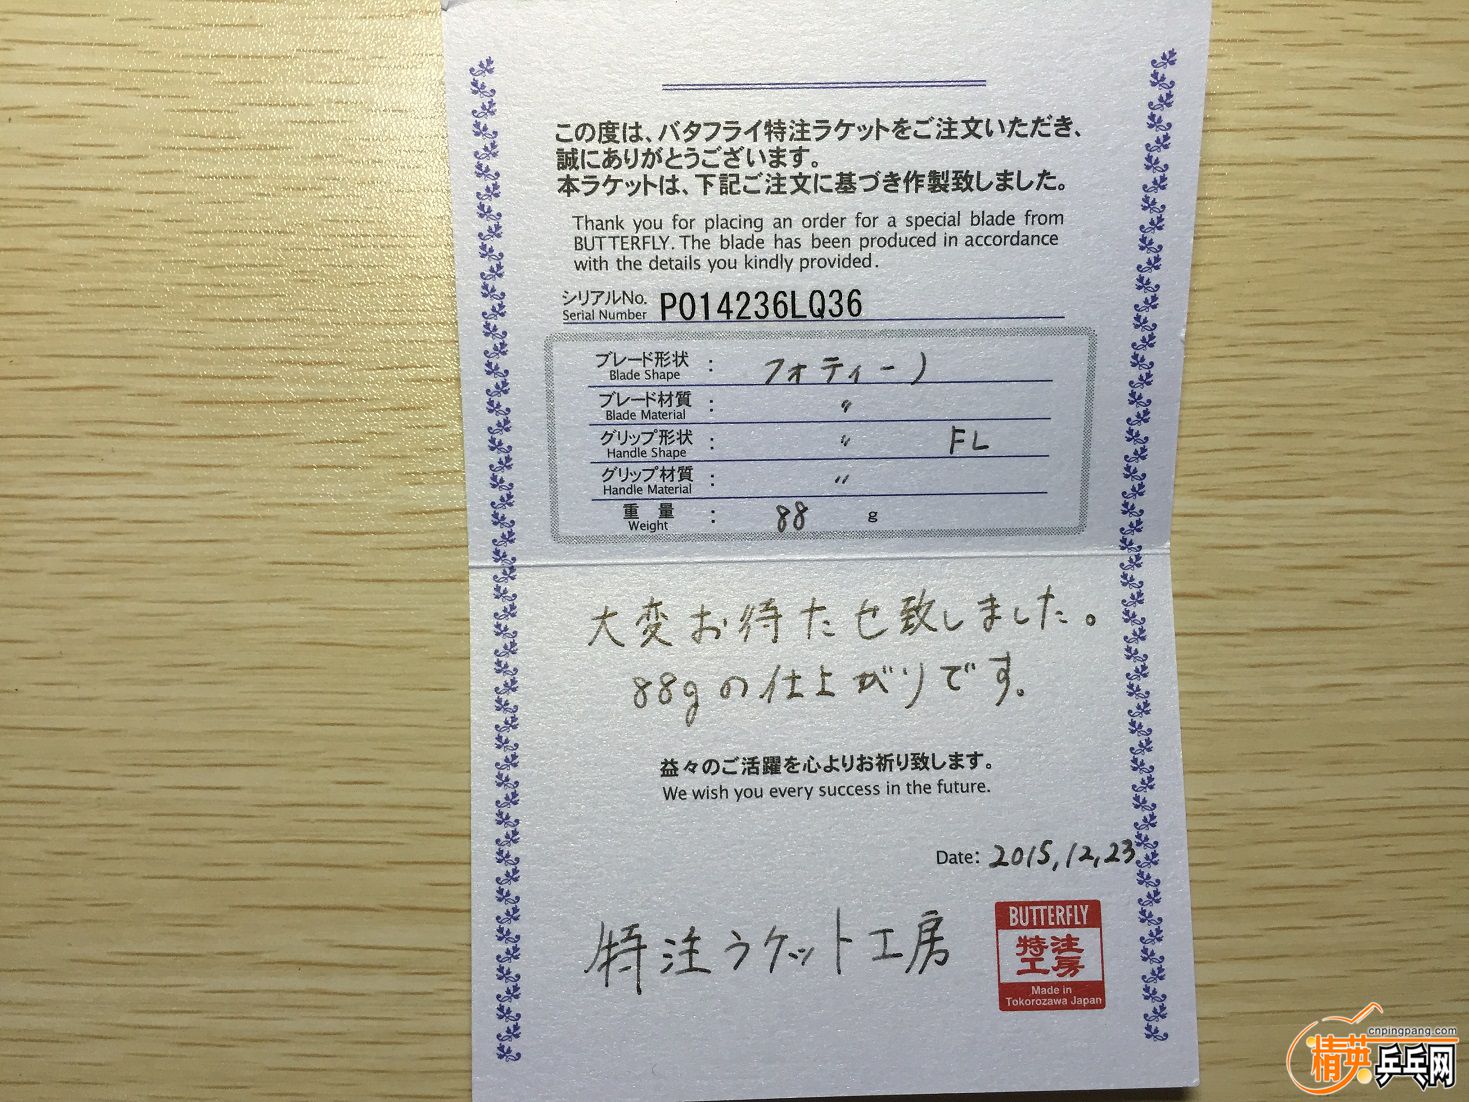 この度は、バタフライ特注ラケットをご注文いただき、
誠にありがとうございます。
本ラケットは、下記ご注文に基づき作製致しました。
Thank you for placing an order for a special blade from
BUTTERFLY. The blade has been produced in accordance
with the details you kindly provided.
シリアルNo.
Serial Number P014236LQ36
ブレード形状 : フォティーノ
Blade Shape
ブレード材質 : 〃
Blade Material
グリップ形状 : 〃 FL
Handle Shape
グリップ材質 : 〃
Handle Material
重量 : 88 g
Weight
大変お待たせ致しました。
88gの仕上がりです。
益々のご活躍を心よりお祈り致します。
We wish you every success in the future.
Date: 2015,12,23
特注ラケット工房
BUTTERFLY
特注
工房
Made in
Tokorozawa Japan
cnpingpang.com
精英乒乓网